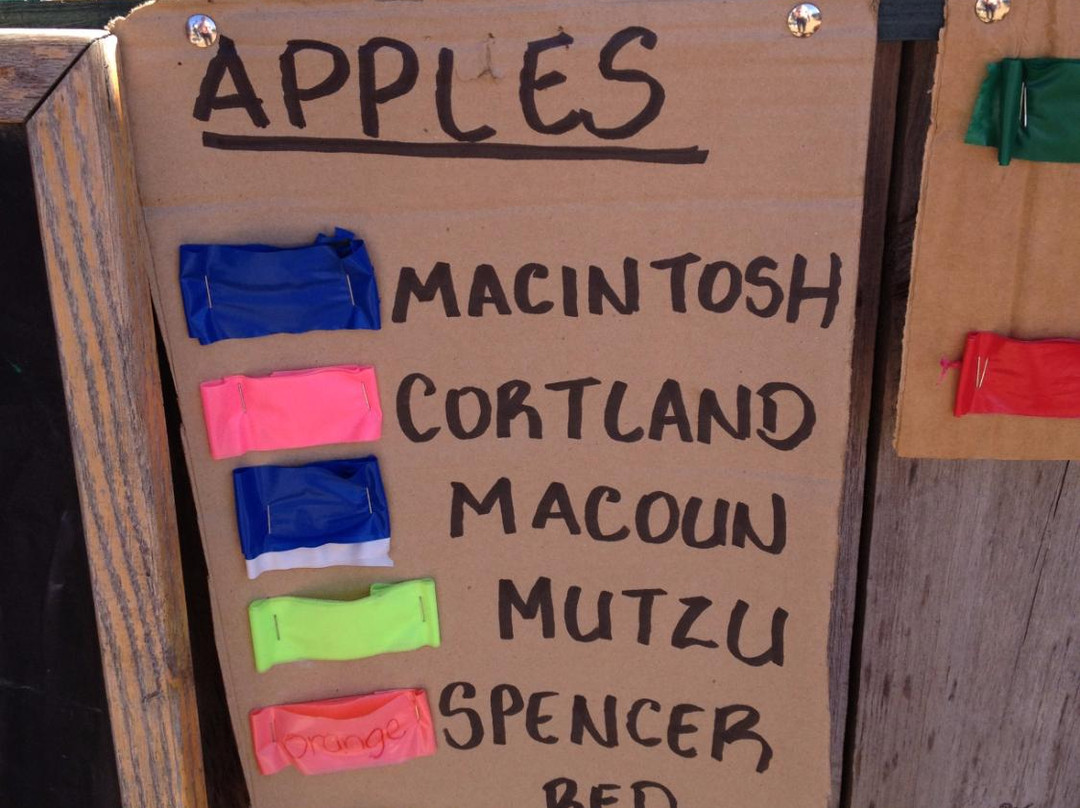 APPLES
MACINTOSH
CORTLAND
MACOUN
MUTZU
SPENCER
orange
RED